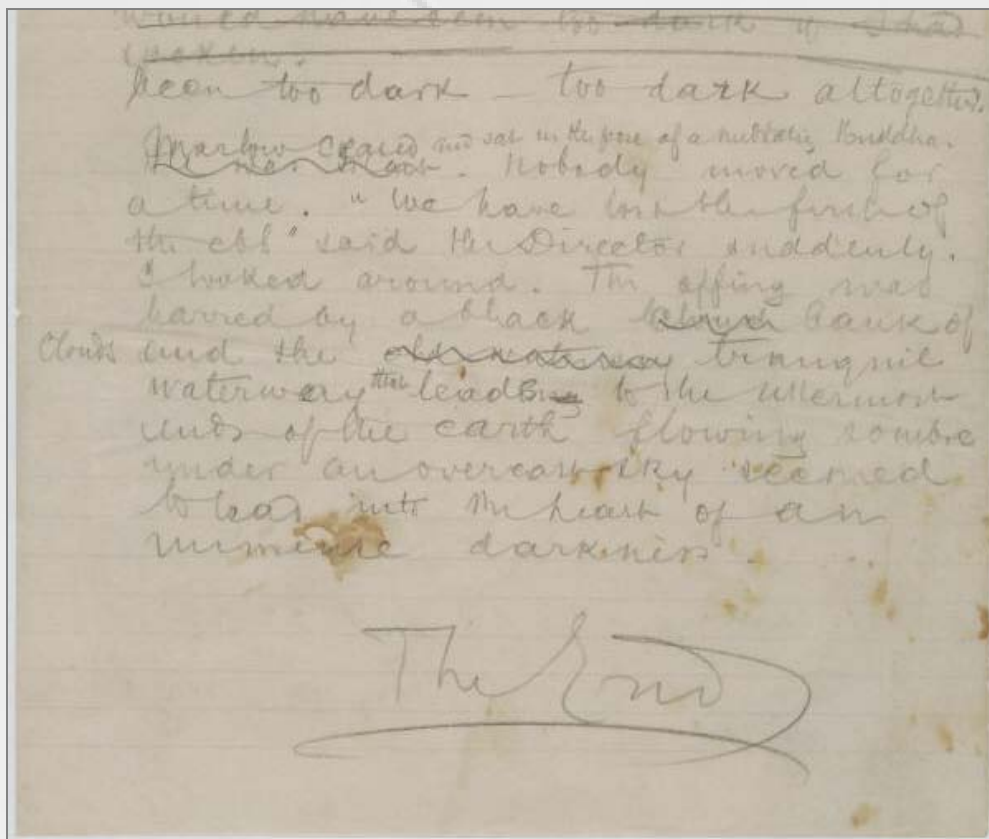 would have been too dark if I had
spoken.
been too dark — too dark altogether.
Marlow ceased and sat in the pose of a meditating Buddha.
Nobody moved for
a time. "We have lost the first of
the ebb" said the Director suddenly.
I looked around. The offing was
barred by a black bank of
clouds and the tranquil
waterway that leads to the uttermost
ends of the earth flowing sombre
under an overcast sky seemed
to lead into the heart of an
immense darkness . . .
The End